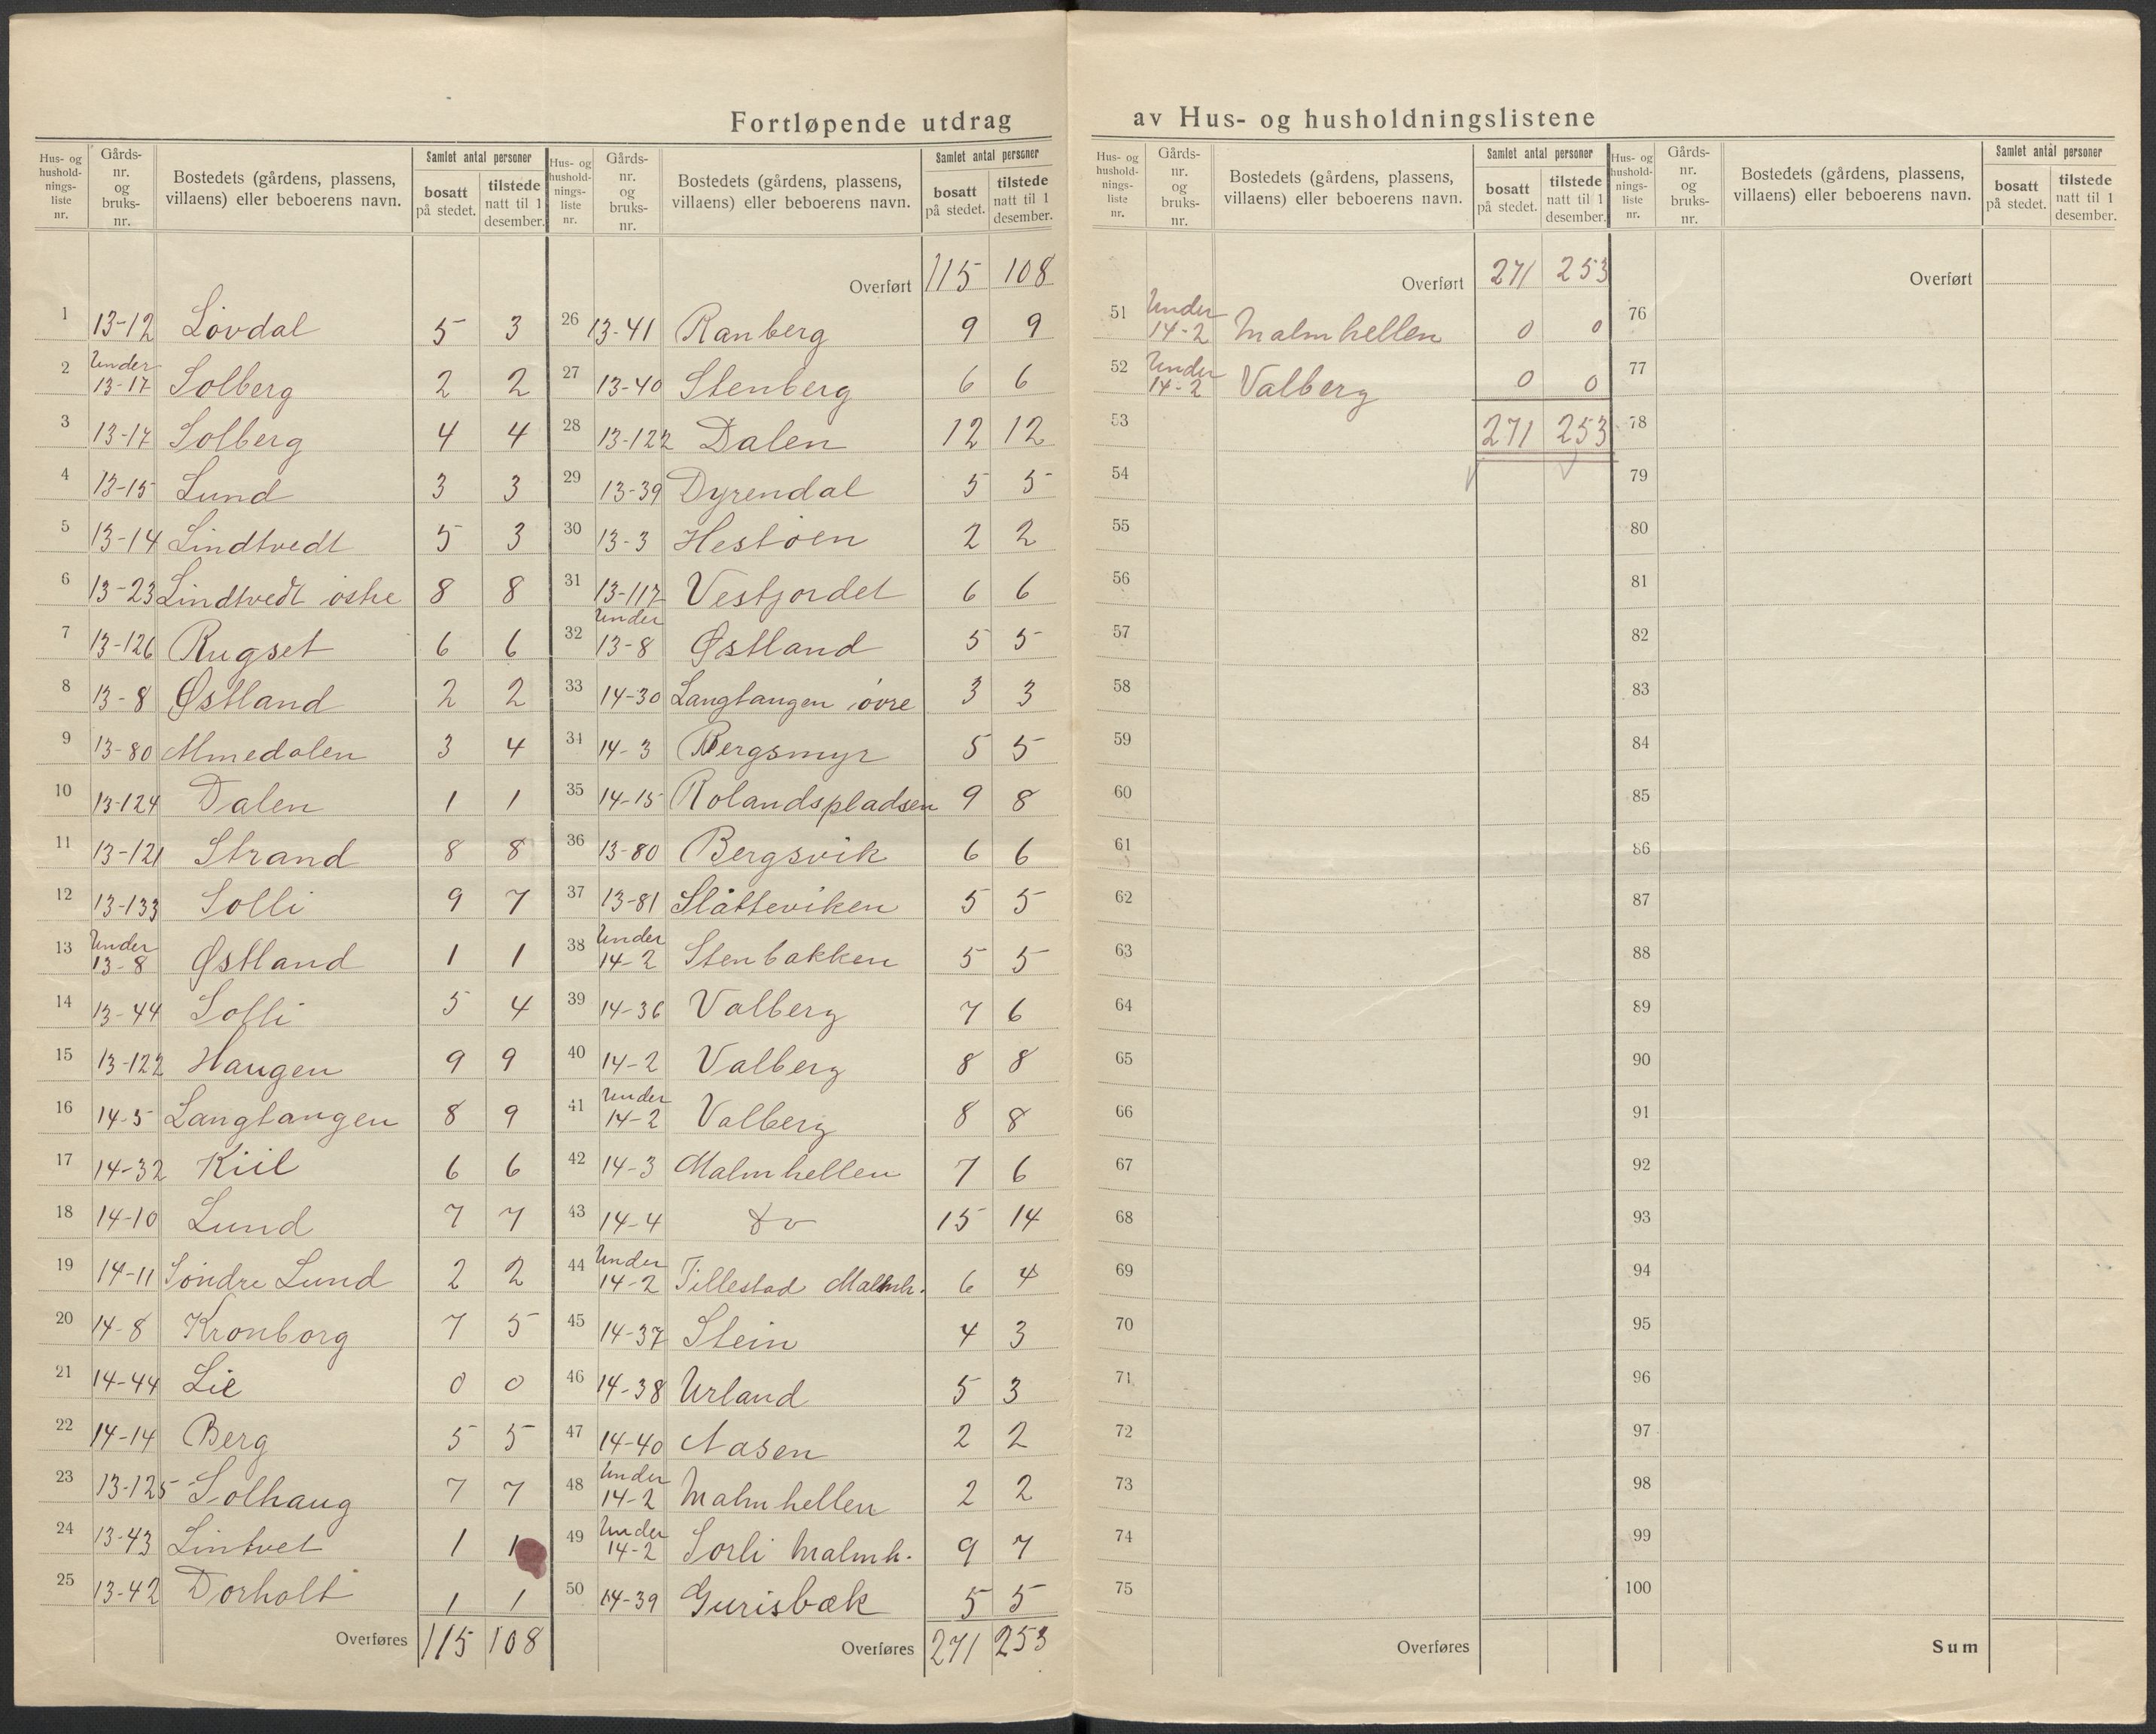 Fortløpende utdrag av Hus- og husholdningslistene
Hus- og husholdnings-liste nr. Gårds-nr. og bruks-nr. Bostedets (gårdens, plassens, villaens) eller beboerens navn. Samlet antal personer bosatt på stedet. tilstede natt til 1 desember.
1 13-12 Løvdal 5 3
2 Under 13-17 Solberg 2 2
3 13-17 Solberg 4 4
4 13-15 Lund 3 3
5 13-14 Lindtvedt 5 3
6 13-23 Lindtvedt østre 8 8
7 13-126 Rugset 6 6
8 13-8 Østland 2 2
9 13-80 Almedalen 3 4
10 13-124 Dalen 1 1
11 13-121 Strand 8 8
12 13-133 Solli 9 7
13 Under 13-8 Østland 1 1
14 13-44 Solli 5 4
15 13-122 Haugen 9 9
16 14-5 Langtangen 8 9
17 14-32 Kiil 6 6
18 14-10 Lund 7 7
19 14-11 Søndre Lund 2 2
20 14-8 Kronborg 7 5
21 14-44 Lie 0 0
22 14-14 Berg 5 5
23 13-125 Solhaug 7 7
24 13-43 Lintvet 1 1
25 13-42 Dorholt 1 1
Overføres 115 108
Hus- og husholdnings-liste nr. Gårds-nr. og bruks-nr. Bostedets (gårdens, plassens, villaens) eller beboerens navn. Samlet antal personer bosatt på stedet. tilstede natt til 1 desember.
Overført 115 108
26 13-41 Ranberg 9 9
27 13-40 Stenberg 6 6
28 13-122 Dalen 12 12
29 13-39 Dyrendal 5 5
30 13-3 Hestøen 2 2
31 13-117 Vestjordet 6 6
32 Under 13-8 Østland 5 5
33 14-30 Langtangen øvre 3 3
34 14-3 Bergsmyr 5 5
35 14-15 Rolandspladsen 9 8
36 13-80 Bergsvik 6 6
37 13-81 Slåtteviken 5 5
38 Under 14-2 Stenbakken 5 5
39 14-36 Valberg 7 6
40 14-2 Valberg 8 8
41 Under 14-2 Valberg 8 8
42 14-3 Malmhellen 7 6
43 14-4 do 15 14
44 Under 14-2 Tillestad Malmh. 6 4
45 14-37 Stein 4 3
46 14-38 Urland 5 3
47 14-40 Aasen 2 2
48 Under 14-2 Malmhellen 2 2
49 Under 14-2 Sørli Malmh. 9 7
50 14-39 Gurisbæk 5 5
Overføres 271 253
Hus- og husholdnings-liste nr. Gårds-nr. og bruks-nr. Bostedets (gårdens, plassens, villaens) eller beboerens navn. Samlet antal personer bosatt på stedet. tilstede natt til 1 desember.
Overført 271 253
51 Under 14-2 Malmhellen 0 0
52 Under 14-2 Valberg 0 0
53 271 253
54
55
56
57
58
59
60
61
62
63
64
65
66
67
68
69
70
71
72
73
74
75
Overføres
Hus- og husholdnings-liste nr. Gårds-nr. og bruks-nr. Bostedets (gårdens, plassens, villaens) eller beboerens navn. Samlet antal personer bosatt på stedet. tilstede natt til 1 desember.
Overført
76
77
78
79
80
81
82
83
84
85
86
87
88
89
90
91
92
93
94
95
96
97
98
99
100
Sum